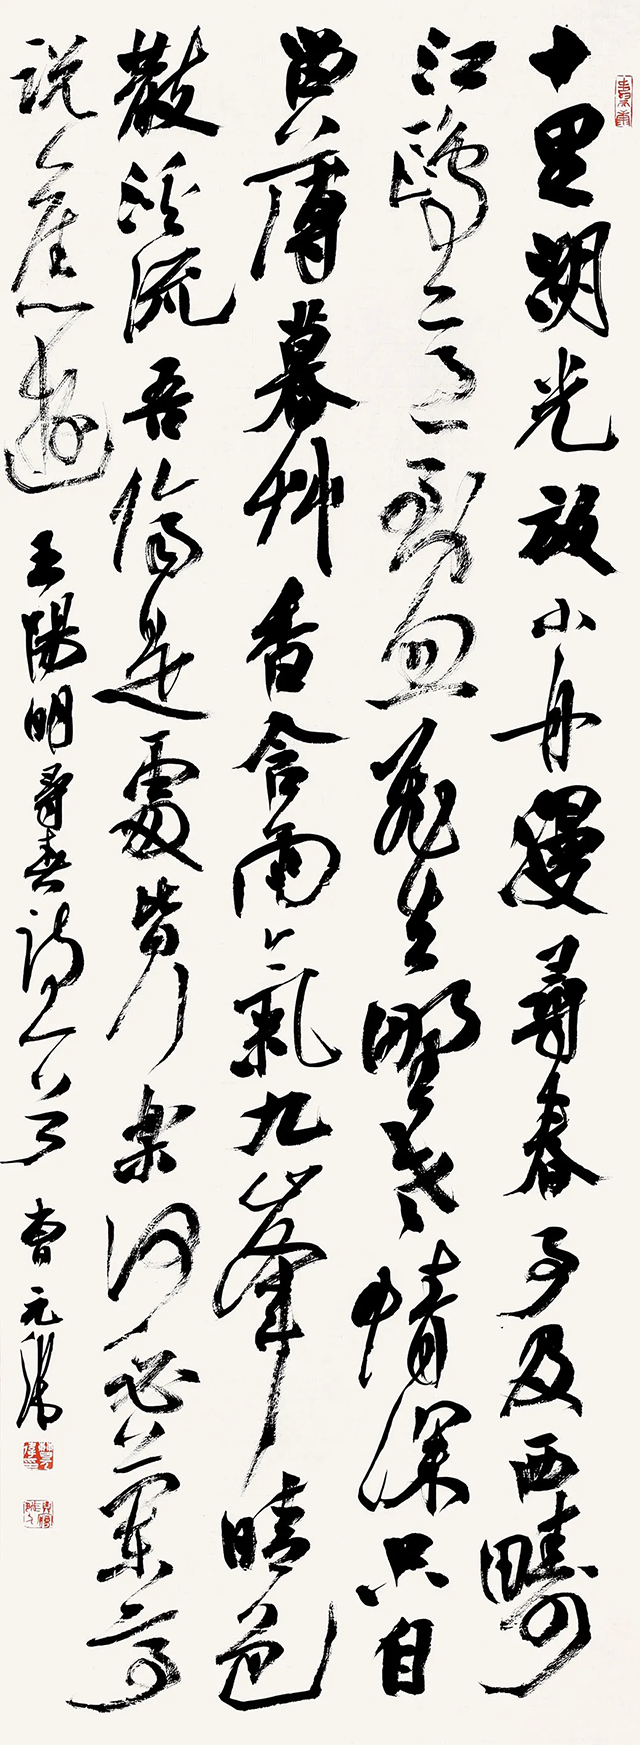 十里湖光放小舟漫尋春事及西疇
江鷗意到忽飛去野老情深只自
留薄暮艸香含雨氣九峯晴色
散溪流吾儕是處皆行樂何必蘭亭
說舊遊 王陽明尋春詩一首 曹元